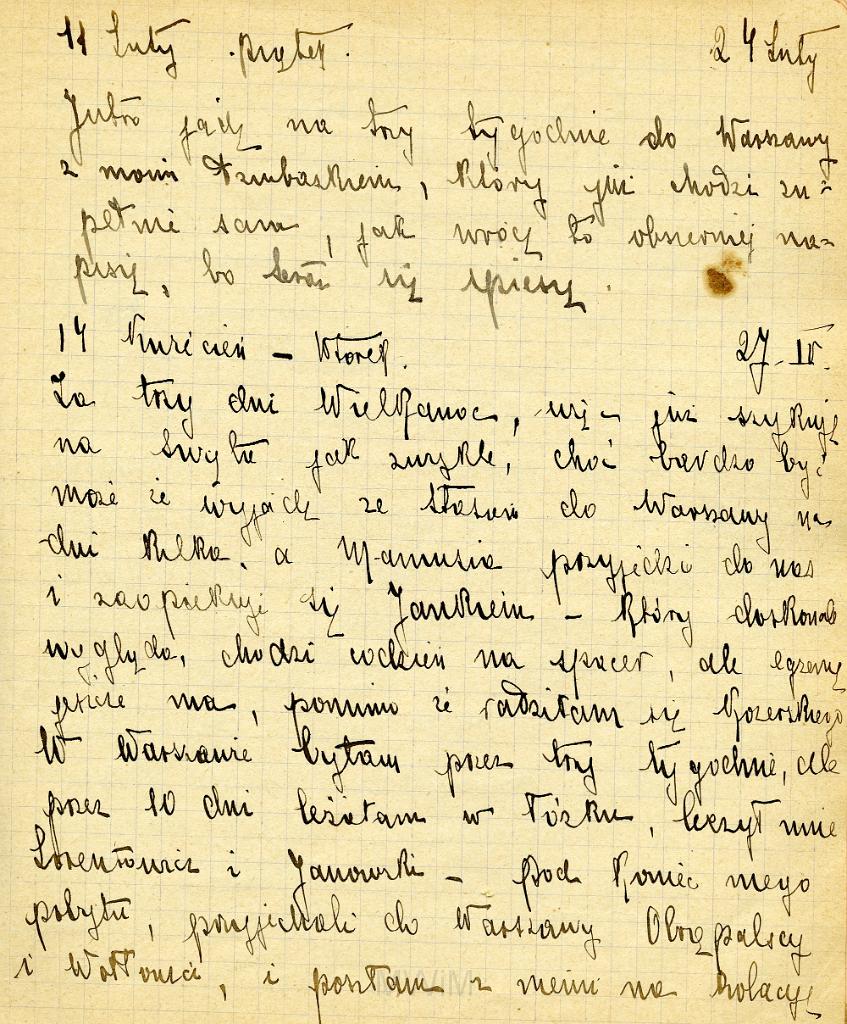 11 Luty piątek. 24 Luty
Jutro jadę na trzy tygodnie do Warszawy
z moim Bzubaskiem, który już chodzi zu=
pełnie sam, jak wrócę to obszerniej na=
piszę, bo teraz się spieszę.
14 Kwiecień – Wtorek. 27 IV.
Za trzy dni Wielkanoc, już szykuję
na święta jak zwykle, choć bardzo być
może że wyjadę ze Stasiem do Warszawy na
dni kilka, a Mamusia przyjedzie do nas
i zaopiekuje się Jankiem – który doskonale
wygląda, chodzi codzień na spacer, ale egzemę
jeszcze ma, pomimo że radziłam się
W Warszawie byłam przez trzy tygodnie, ale
przez 10 dni leżałam w łóżku, leczył mnie
Lorentowicz i Janowski – pod koniec mego
pobytu, przyjechali do Warszawy Obrąpalscy
i, i poszłam z niemi na kolację
MWiM